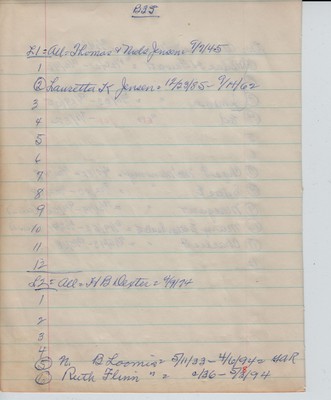 B25
£1 = All = Thomas & Nels Jensen = 9/7/45
1
② Lauretta K Jensen = 12/23/85 - 9/14/62
3
4
5
6
7
8
9
10
11
12
£2 = All = H B Dexter = 4/9/74
1
2
3
4
⑤ N. B Loomis = 5/11/33 - 4/6/94 = WAR
⑥ Ruth Flinn " = /36 - 5/8/94